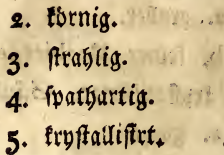 2. körnig.
3. strahlig.
4. spathartig.
5. krystallisirt.